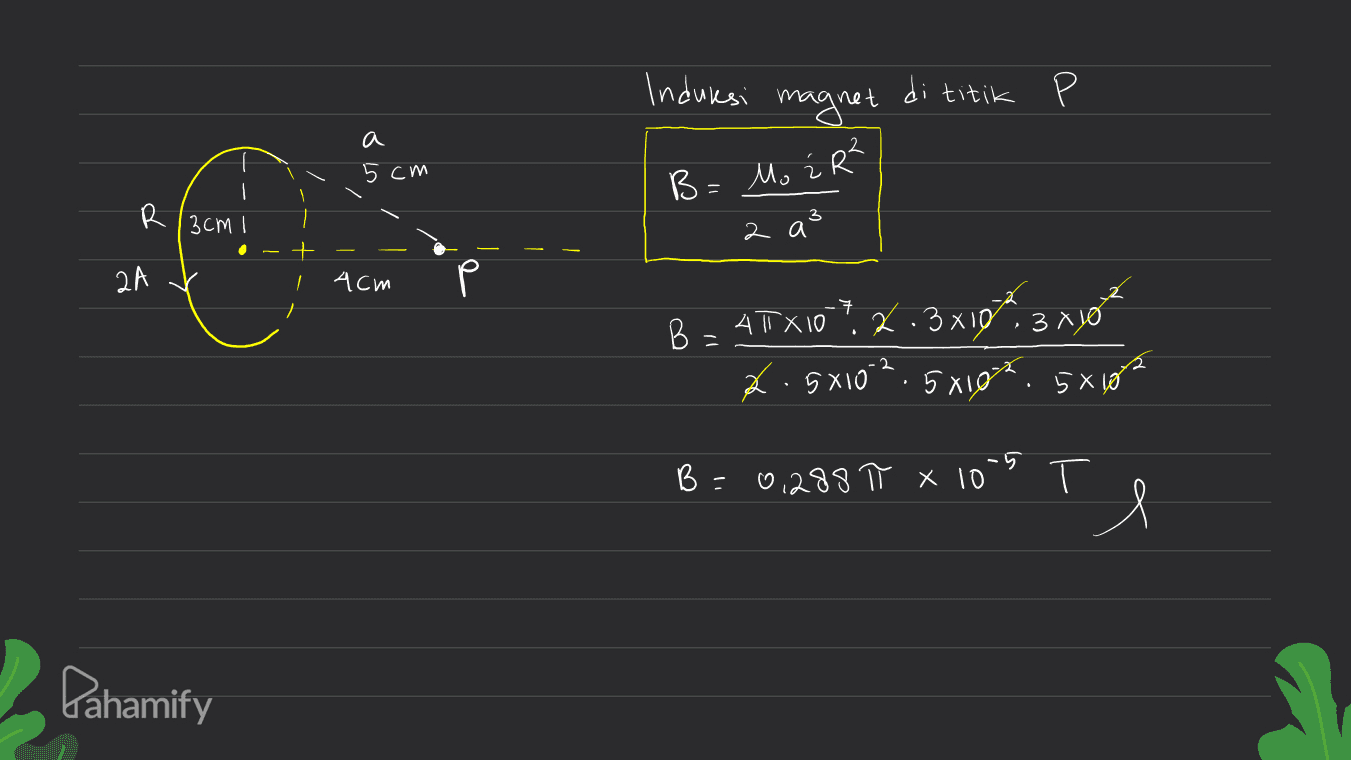 Induksi magnet di titik P
a
5 cm
B = μ₀ i R²
2 a³
R 3cm
2A 4cm P
B = 4π×10⁻⁷. 2 . 3×10⁻² . 3×10⁻²
2 . 5×10⁻² . 5×10⁻² . 5×10⁻²
B = 0,288 π × 10⁻⁵ T
Pahamify